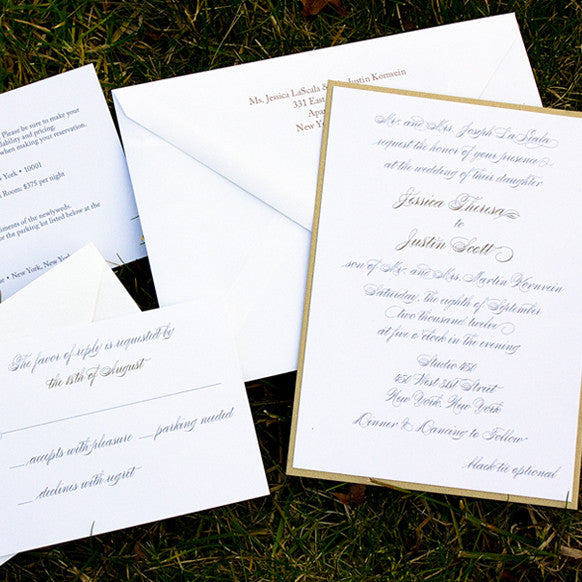 Please be sure to make your
ability and pricing.
when making your reservation.
York • 10001
Room: $375 per night
iments of the newlyweds.
or the parking lot listed below at the
e • New York, New
Ms. Jessica LaScala & Justin Kornvein
331 East
Apa
New York
Mr. and Mrs. Joseph LaScala
request the honor of your presence
at the wedding of their daughter
Jessica Theresa
to
Justin Scott
son of Mr. and Mrs. Martin Kornvein
Saturday, the eighth of September
two thousand twelve
at five o'clock in the evening
Studio 450
450 West 31st Street
New York, New York
Dinner & Dancing to Follow
black tie optional
The favor of reply is requested by
the 18th of August
accepts with pleasure parking needed
declines with regret